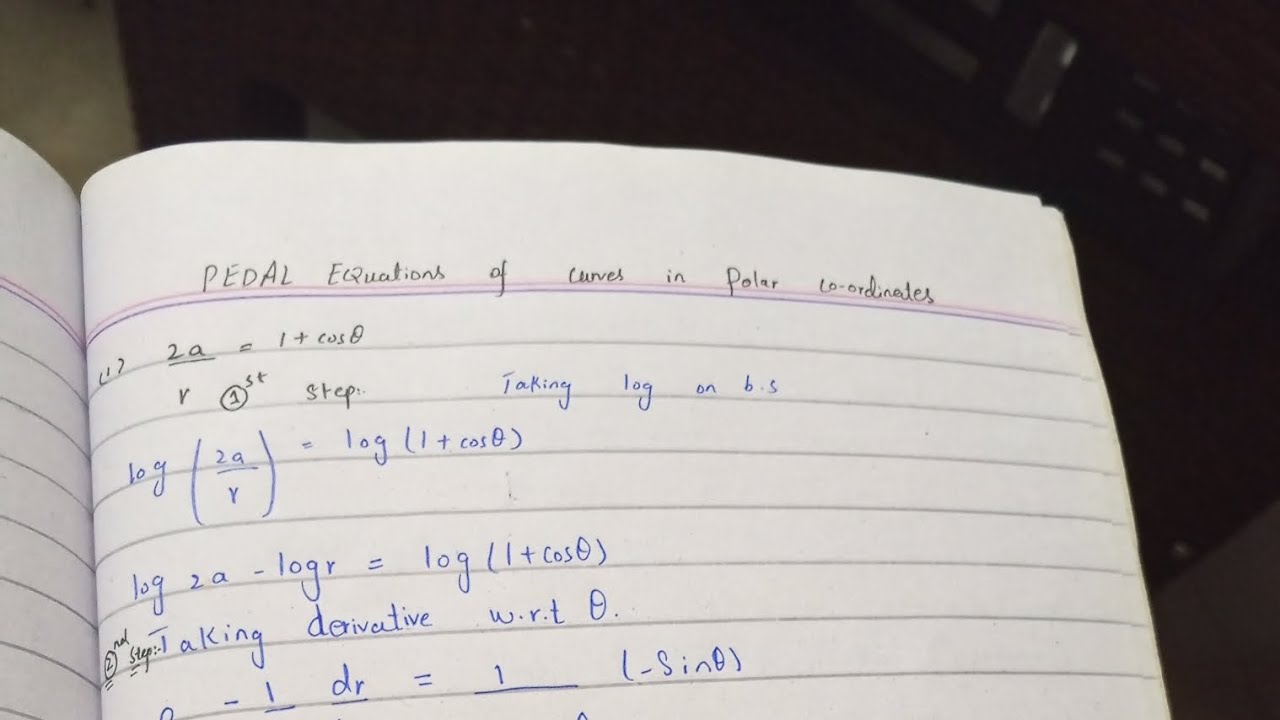 PEDAL EQuations of curves in Polar co-ordinates
(1) 2a/r = 1 + cosθ
①st step:- Taking log on b.s
log (2a/r) = log (1 + cosθ)
log 2a - logr = log (1 + cosθ)
②nd step:- Taking derivative w.r.t θ.
- 1 dr = 1 (-Sinθ)